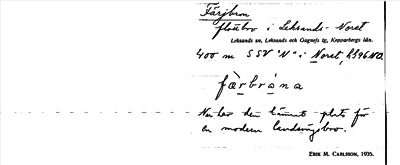 Färjbron
flottbro i Leksands-Noret
Leksands sn, Leksands och Gagnefs tg, Kopparbergs län.
400 m SSV "N" i Noret,
färbróna
Nu har den lämnat plats för
en modern landsvägsbro.
ERIK M. CARLSSON, 1935.